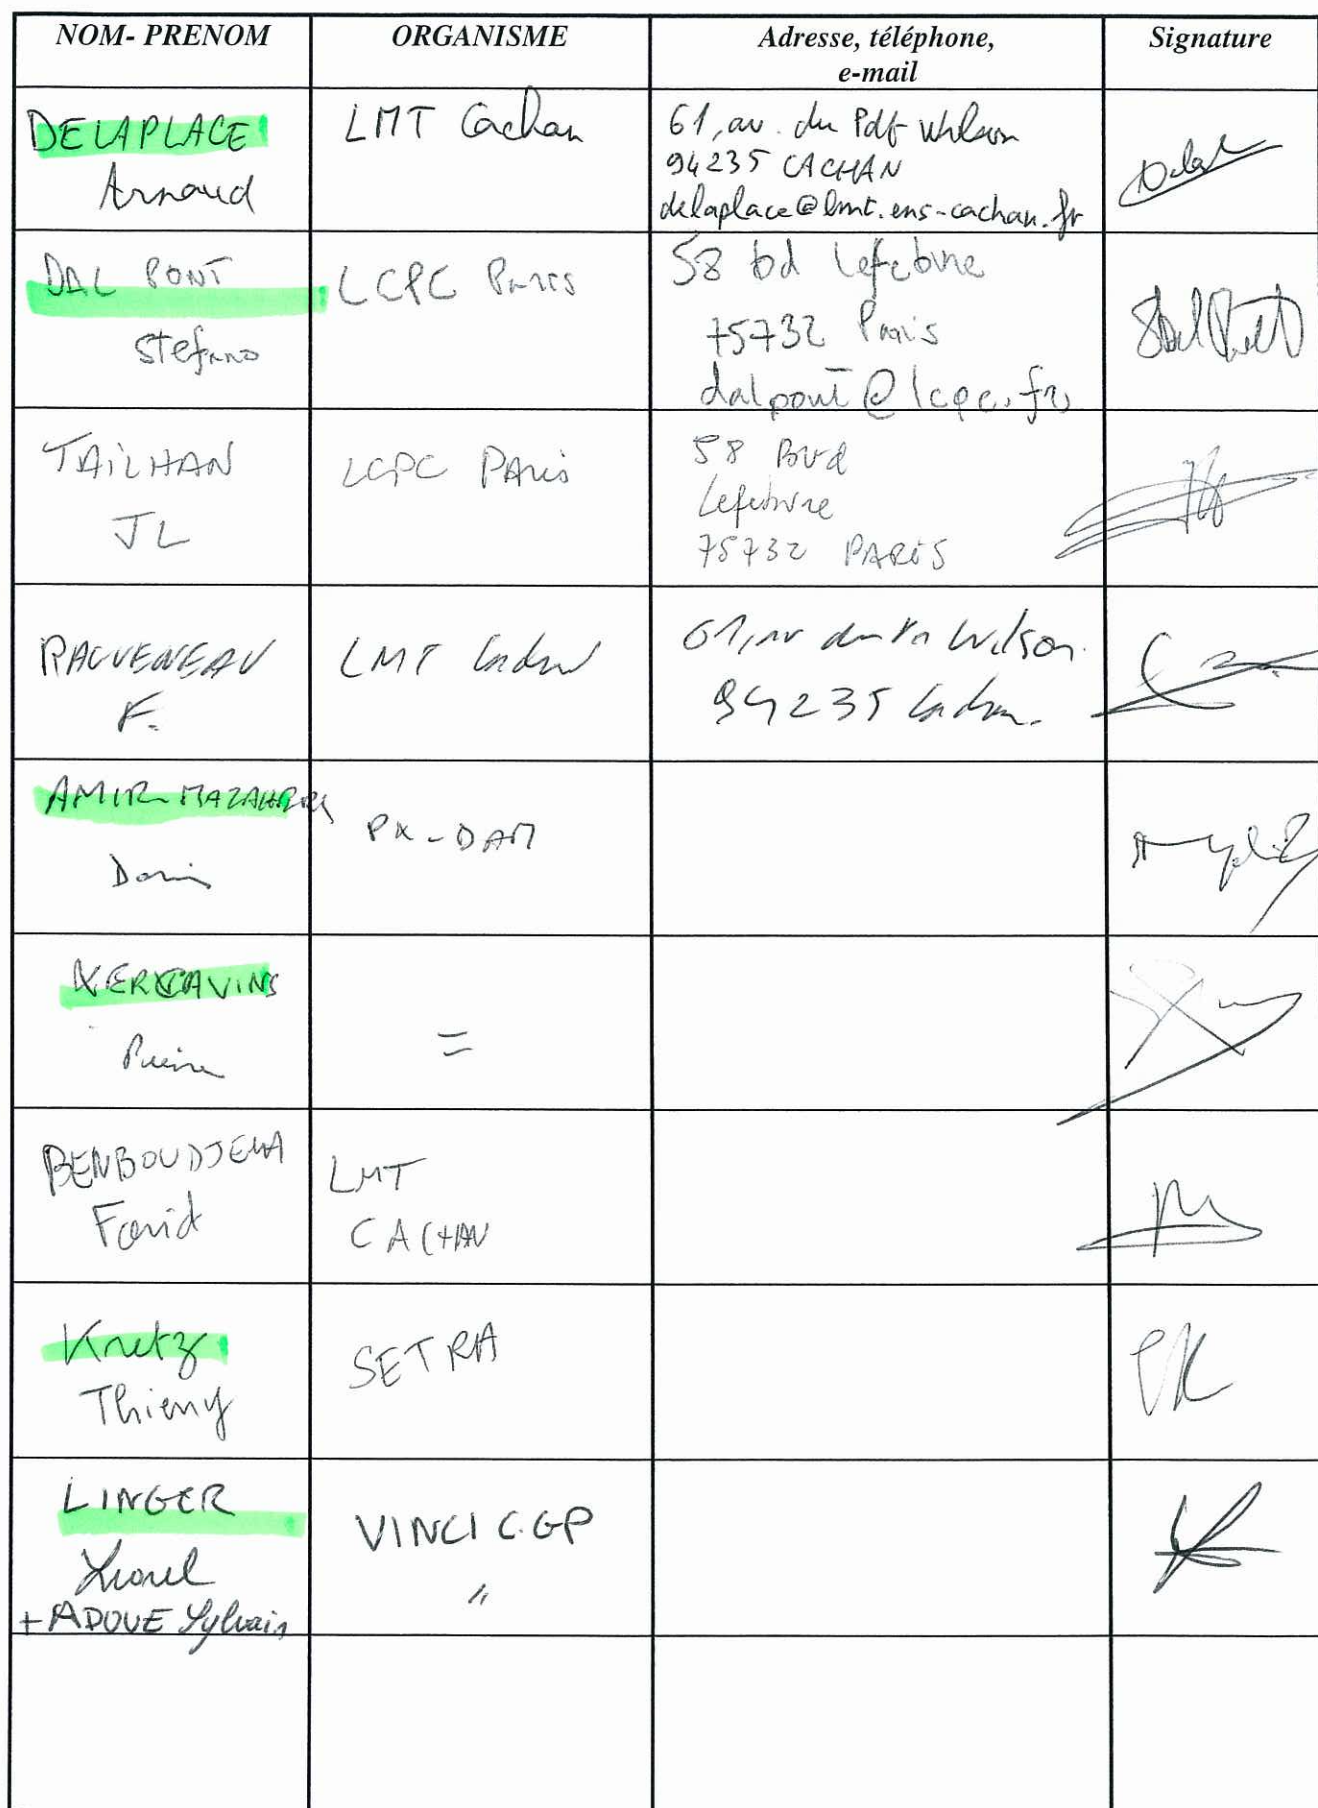 NOM- PRENOM
ORGANISME
Adresse, téléphone,
e-mail
Signature
DELAPLACE
Arnaud
LMT Cachan
61, av. du Pdt Wilson
94235 CACHAN
delaplace@lmt.ens-cachan.fr
DAL PONT
Stefano
LCPC Paris
58 bd Lefebvre
75732 Paris
dalpont@lcpc.fr
TAILHAN
JL
LCPC PAris
58 BLVd
Lefebvre
75732 PARIS
RAGUENEAU
F.
LMT Cachan
61, av du Pt Wilson.
94235 Cachan.
AMIR-MAZAHERI
Daris
PX-DAM
XERCAVINS
Pierre
=
BENBOUDJEMA
Farid
LMT
CACHAN
Kretz
Thierry
SETRA
TK
LINGER
Lionel
+ADOUE Sylvain
VINCI C.GP
"